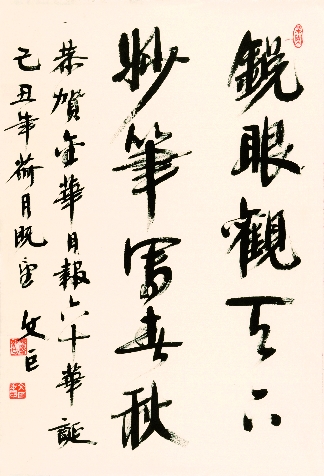 銳眼觀天下
妙筆寫春秋
恭賀金華日報六十華誕
己丑年荷月既望 文